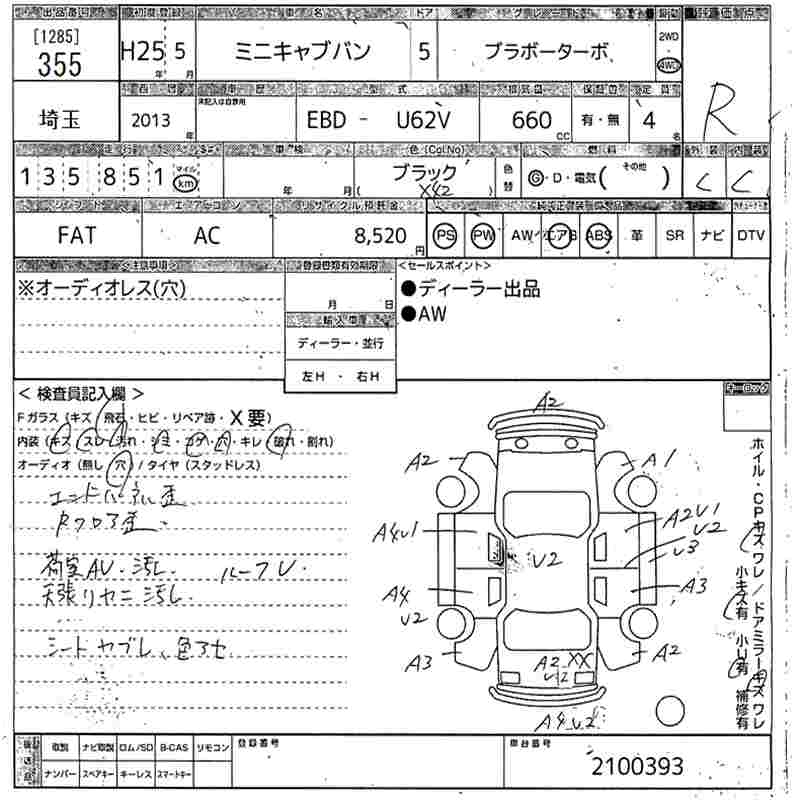 出品番号 初度登録 車名 ドア グレード 駆動 評価点
[1285]
355 H25 5 ミニキャブバン 5 ブラボーターボ 2WD 4WD R
年 月
西暦 車歴 型式 排気量 保証書 定員
未記入は自家用
埼玉 2013 年 EBD - U62V 660 CC 有・無 4 名
走行 車検 色(Col.No) 燃料 外装 内装
135851 マイル km 年 月 ブラック 色替 G・D・電気( その他 ) C C
( X42 )
シフト エアコン リサイクル預託金 純正装備品
FAT AC 8,520 円 PS PW AW エアB ABS 革 SR ナビ DTV
注意事項 登録書類有効期限 <セールスポイント>
※オーディオレス(穴) ●ディーラー出品
月 日 ●AW
輸入車
ディーラー・並行
左H ・ 右H
キーロック
<検査員記入欄>
Fガラス(キズ・飛石・ヒビ・リペア跡・X要)
内装(キズ・スレ・汚れ・シミ・コゲ・穴・キレ・破れ・割れ)
オーディオ(無し・穴)/タイヤ(スタッドレス)
エンドパネル歪
Rフロア歪
荷室AU・汚し ルーフU
天張リヤニ汚し
シートヤブレ、色アセ
A2
A2 A1
A4U1 A2U1
U2
U2 U3
A4 A3
U2
A3 A2 XX A2
U2
A4 U2
ホイル・CPキズワレ/ドアミラーキズワレ
小キズ有 小U有 補修有
後送品 取説 ナビ取説 ロム/SD B-CAS リモコン 登録番号 車台番号
ナンバー スペアキー キーレス スマートキー 2100393